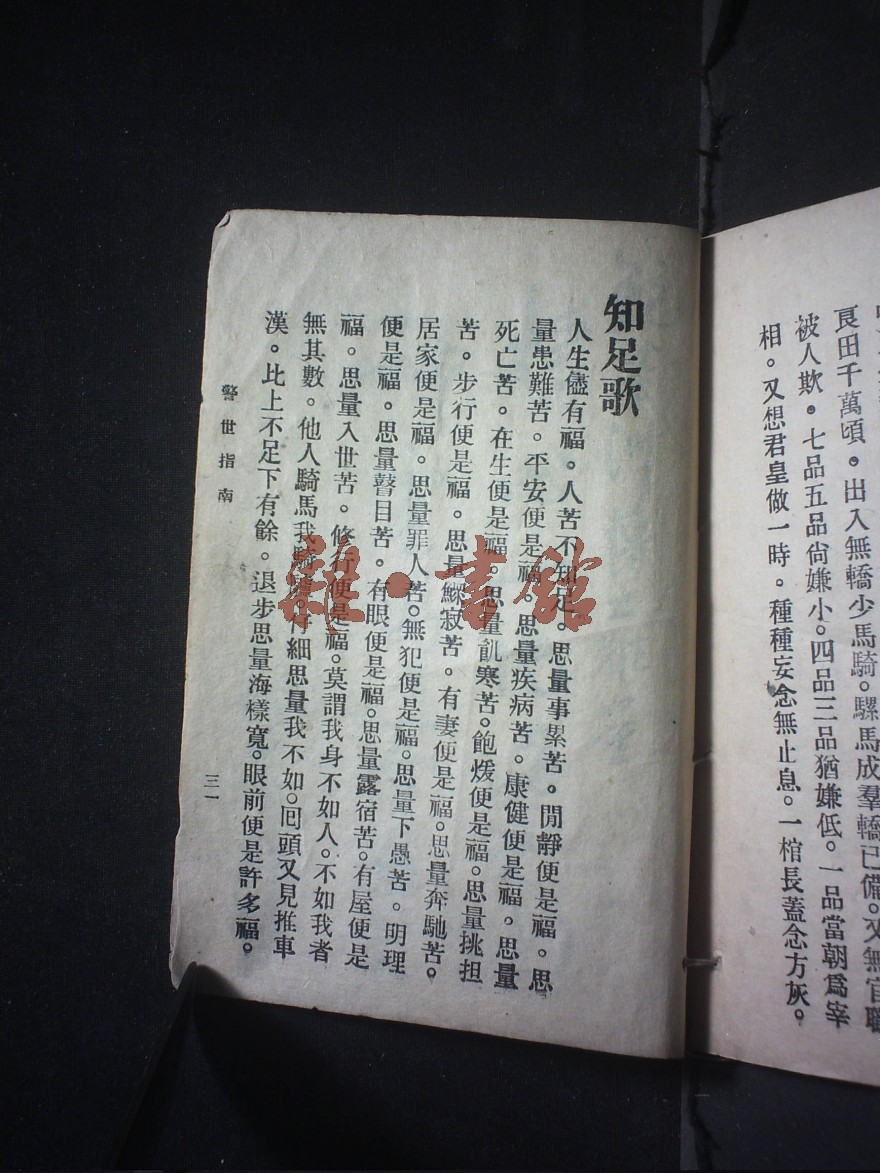 良田千萬頃。出入無轎少馬騎。騾馬成羣轎已備。又無官職
被人欺。七品五品尙嫌小。四品三品猶嫌低。一品當朝爲宰
相。又想君皇做一時。種種妄念無止息。一棺長蓋念方灰。
知足歌
人生儘有福。人苦不知足。思量事累苦。閒靜便是福。思
量患難苦。平安便是福。思量疾病苦。康健便是福。思量
死亡苦。在生便是福。思量飢寒苦。飽煖便是福。思量挑担
苦。步行便是福。思量鰥寂苦。有妻便是福。思量奔馳苦。
居家便是福。思量罪人苦。無犯便是福。思量下愚苦。明理
便是福。思量瞽目苦。有眼便是福。思量露宿苦。有屋便是
福。思量入世苦。修行便是福。莫謂我身不如人。不如我者
無其數。他人騎馬我騎。仔細思量我不如。回頭又見推車
漢。比上不足下有餘。退步思量海樣寬。眼前便是許多福。
警世指南
三一
雜·書館